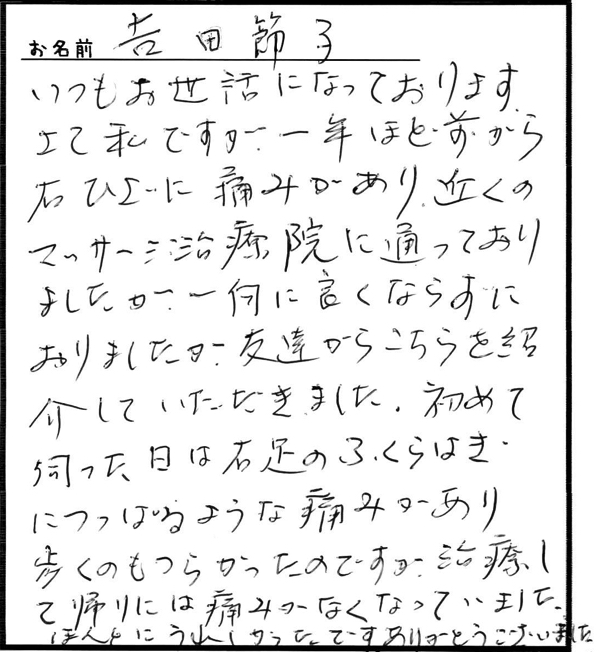 お名前 吉田節子
いつもお世話になっております
さて私ですが一年ほど前から
右ひざに痛みがあり近くの
マッサージ治療院に通っており
ましたが一向に良くならずに
おりましたが友達からこちらを紹
介していただきました。初めて
伺った日は右足のふくらはぎ
につっぱるような痛みがあり
歩くのもつらかったのですが治療し
て帰りには痛みがなくなっていました。
ほんとにうれしかったですありがとうございました